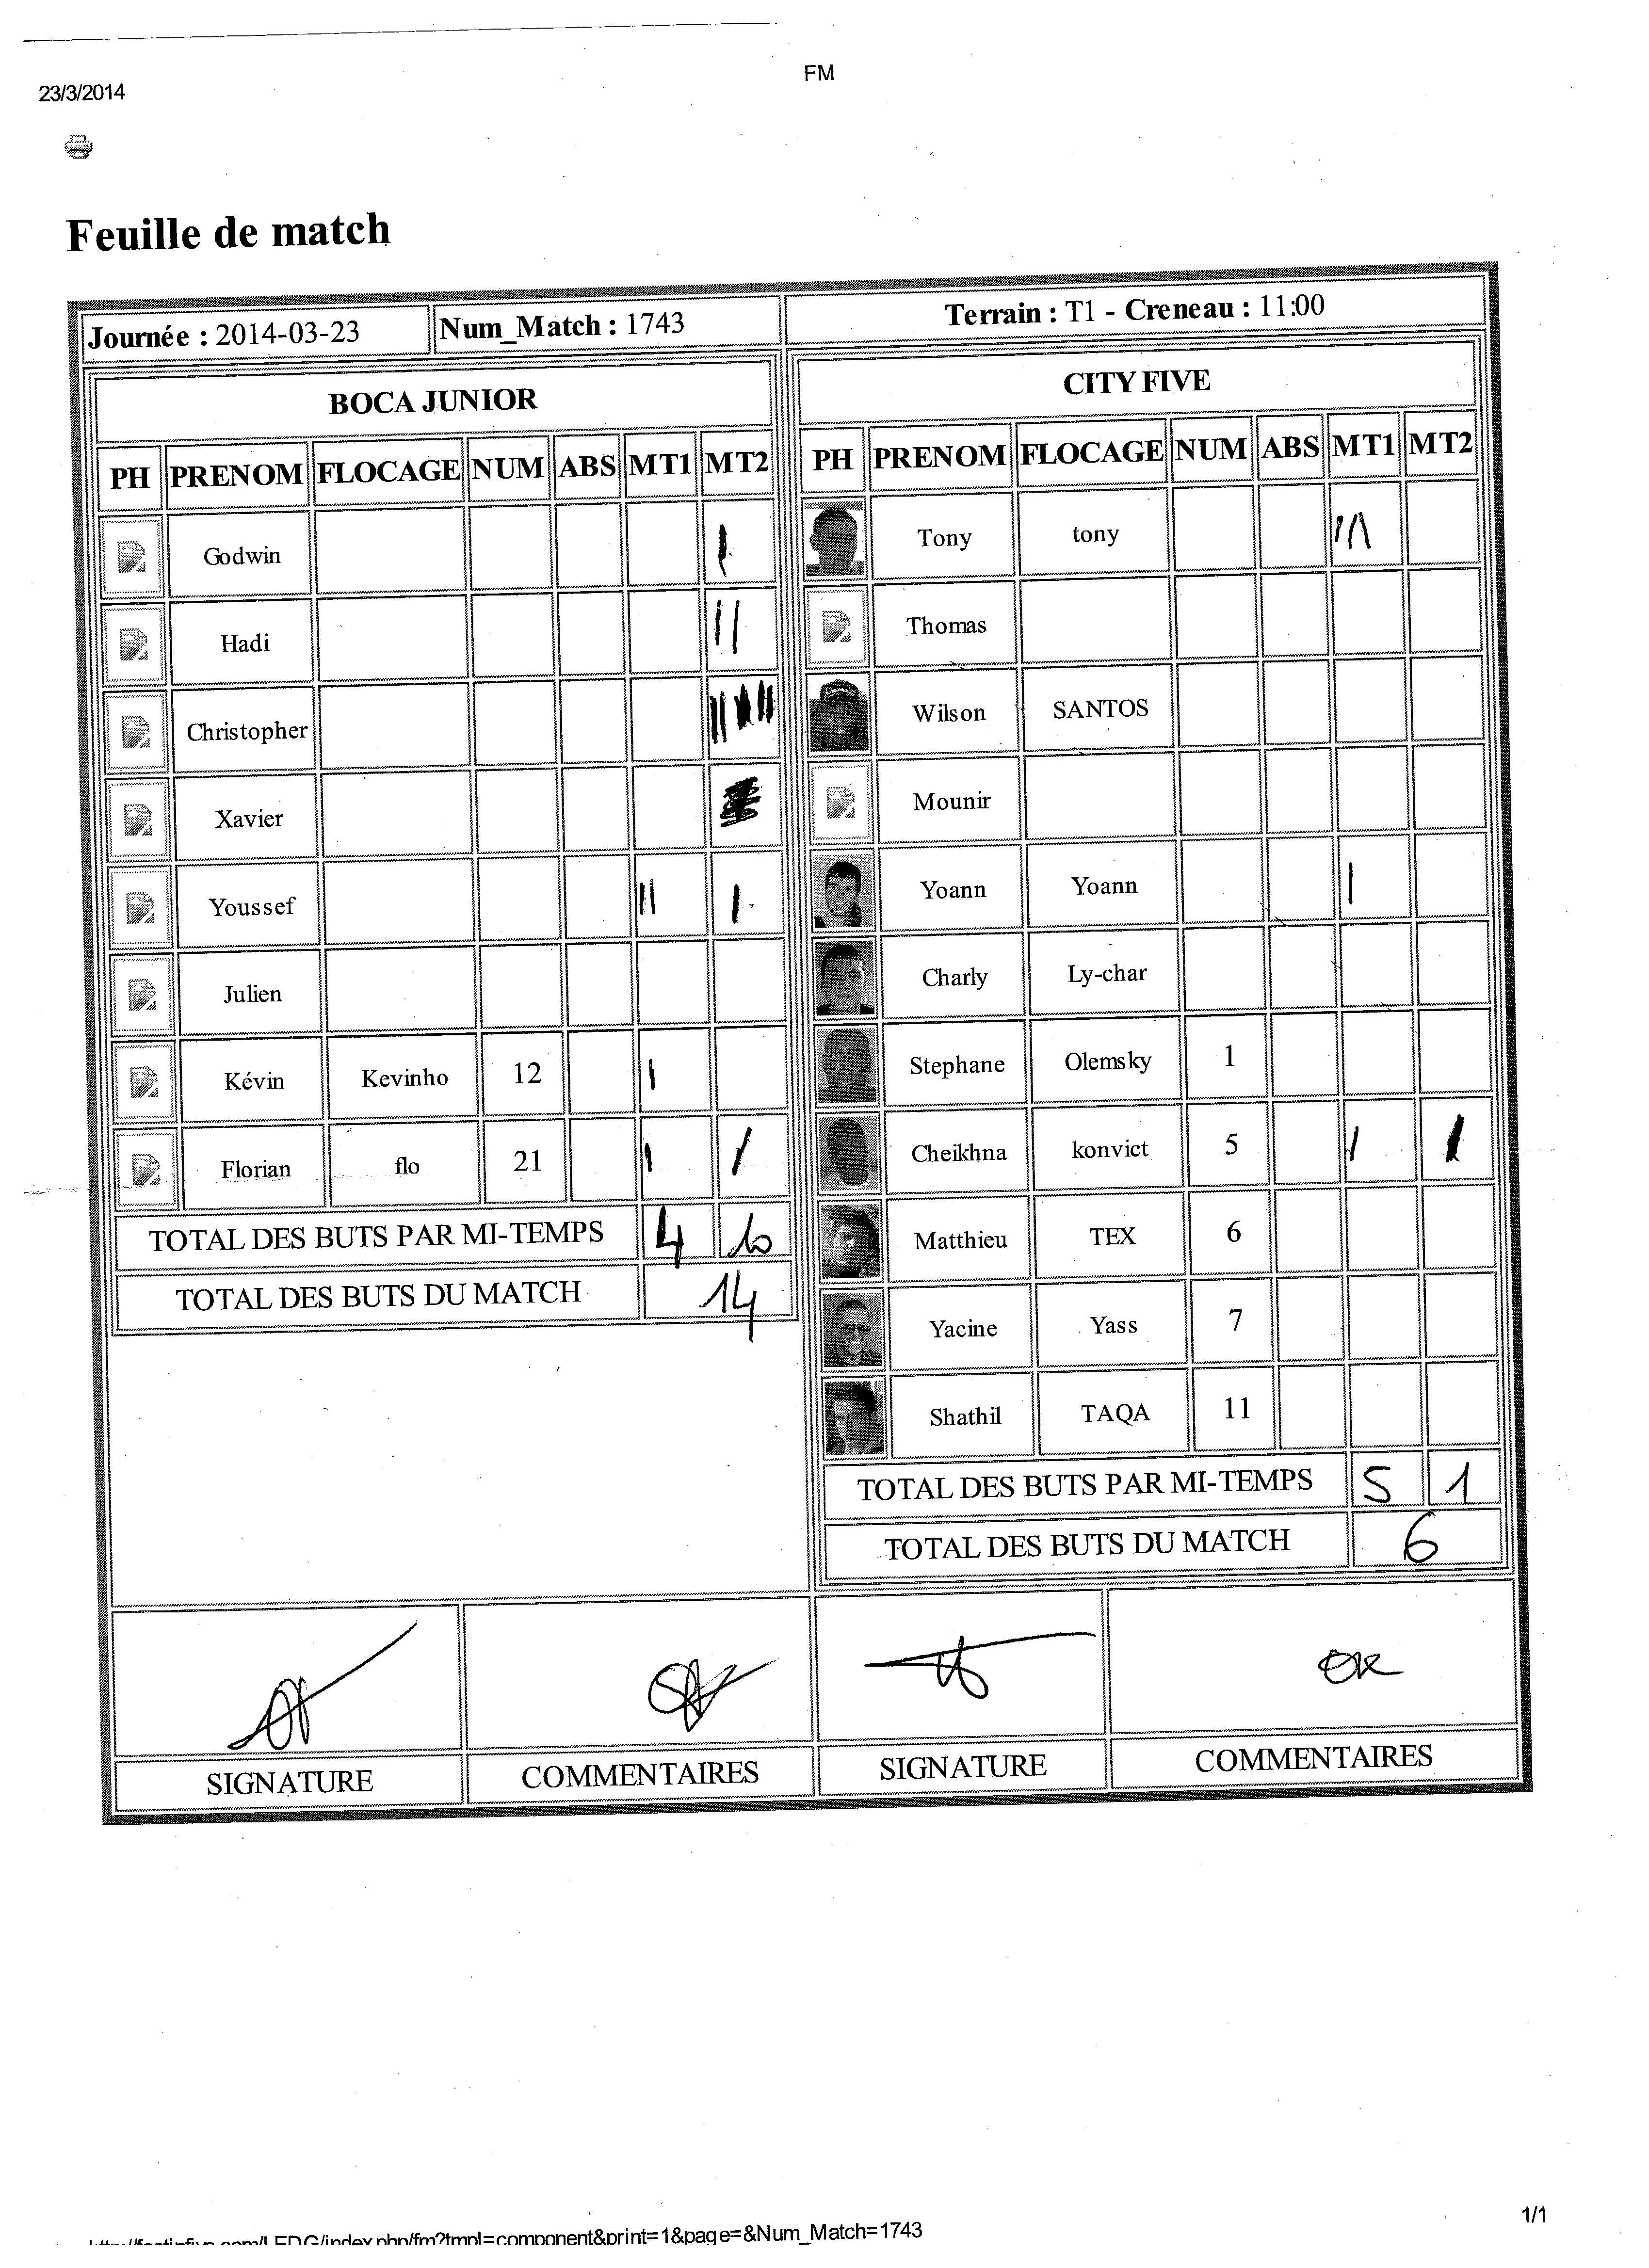 FM
23/3/2014
Feuille de match
Journée : 2014-03-23 Num_Match : 1743 Terrain : T1 - Creneau : 11:00
BOCA JUNIOR
PH PRENOM FLOCAGE NUM ABS MT1 MT2
Godwin
Hadi
Christopher
Xavier
Youssef
Julien
Kévin Kevinho 12
Florian flo 21
TOTAL DES BUTS PAR MI-TEMPS 4 10
TOTAL DES BUTS DU MATCH 14
CITY FIVE
PH PRENOM FLOCAGE NUM ABS MT1 MT2
Tony tony
Thomas
Wilson SANTOS
Mounir
Yoann Yoann
Charly Ly-char
Stephane Olemsky 1
Cheikhna konvict 5
Matthieu TEX 6
Yacine Yass 7
Shathil TAQA 11
TOTAL DES BUTS PAR MI-TEMPS 5 1
TOTAL DES BUTS DU MATCH 6
OK
SIGNATURE COMMENTAIRES SIGNATURE COMMENTAIRES
1/1
index.php/fm?tmpl=component&print=1&page=&Num_Match=1743